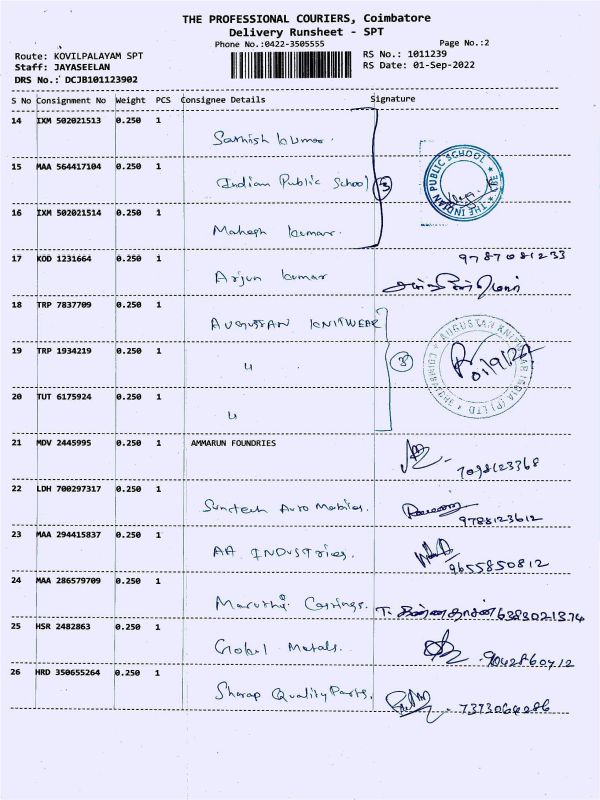 THE PROFESSIONAL COURIERS, Coimbatore
Delivery Runsheet - SPT
Phone No.:0422-3505555 Page No.:2
Route: KOVILPALAYAM SPT RS No.: 1011239
Staff: JAYASEELAN RS Date: 01-Sep-2022
DRS No.: DCJB101123902
S No Consignment No Weight PCS Consignee Details Signature
14 IXM 502021513 0.250 1
Sathish kumar.
15 MAA 564417104 0.250 1
Indian Public School 3
THE INDIAN PUBLIC SCHOOL
16 IXM 502021514 0.250 1
Mahesh kumar.
17 KOD 1231664 0.250 1 9787081233
Arjun kumar
18 TRP 7837709 0.250 1
AUGUSTAN KNITWEAR
19 TRP 1934219 0.250 1
" 3
AUGUSTAN KNITWEAR INDIA (P) LTD COIMBATORE
01/9/22
20 TUT 6175924 0.250 1
"
21 MDV 2445995 0.250 1 AMMARUN FOUNDRIES
7098123368
22 LDH 700297317 0.250 1
Sunctech Auto Mobiles.
9788123612
23 MAA 294415837 0.250 1
AA INDUSTries.
9655850812
24 MAA 286579709 0.250 1
Maruthi Castings. 6383021374
25 HSR 2482863 0.250 1
Global Metals. 9042860412
26 HRD 350655264 0.250 1
Sharap Quality Parts. 7373064286